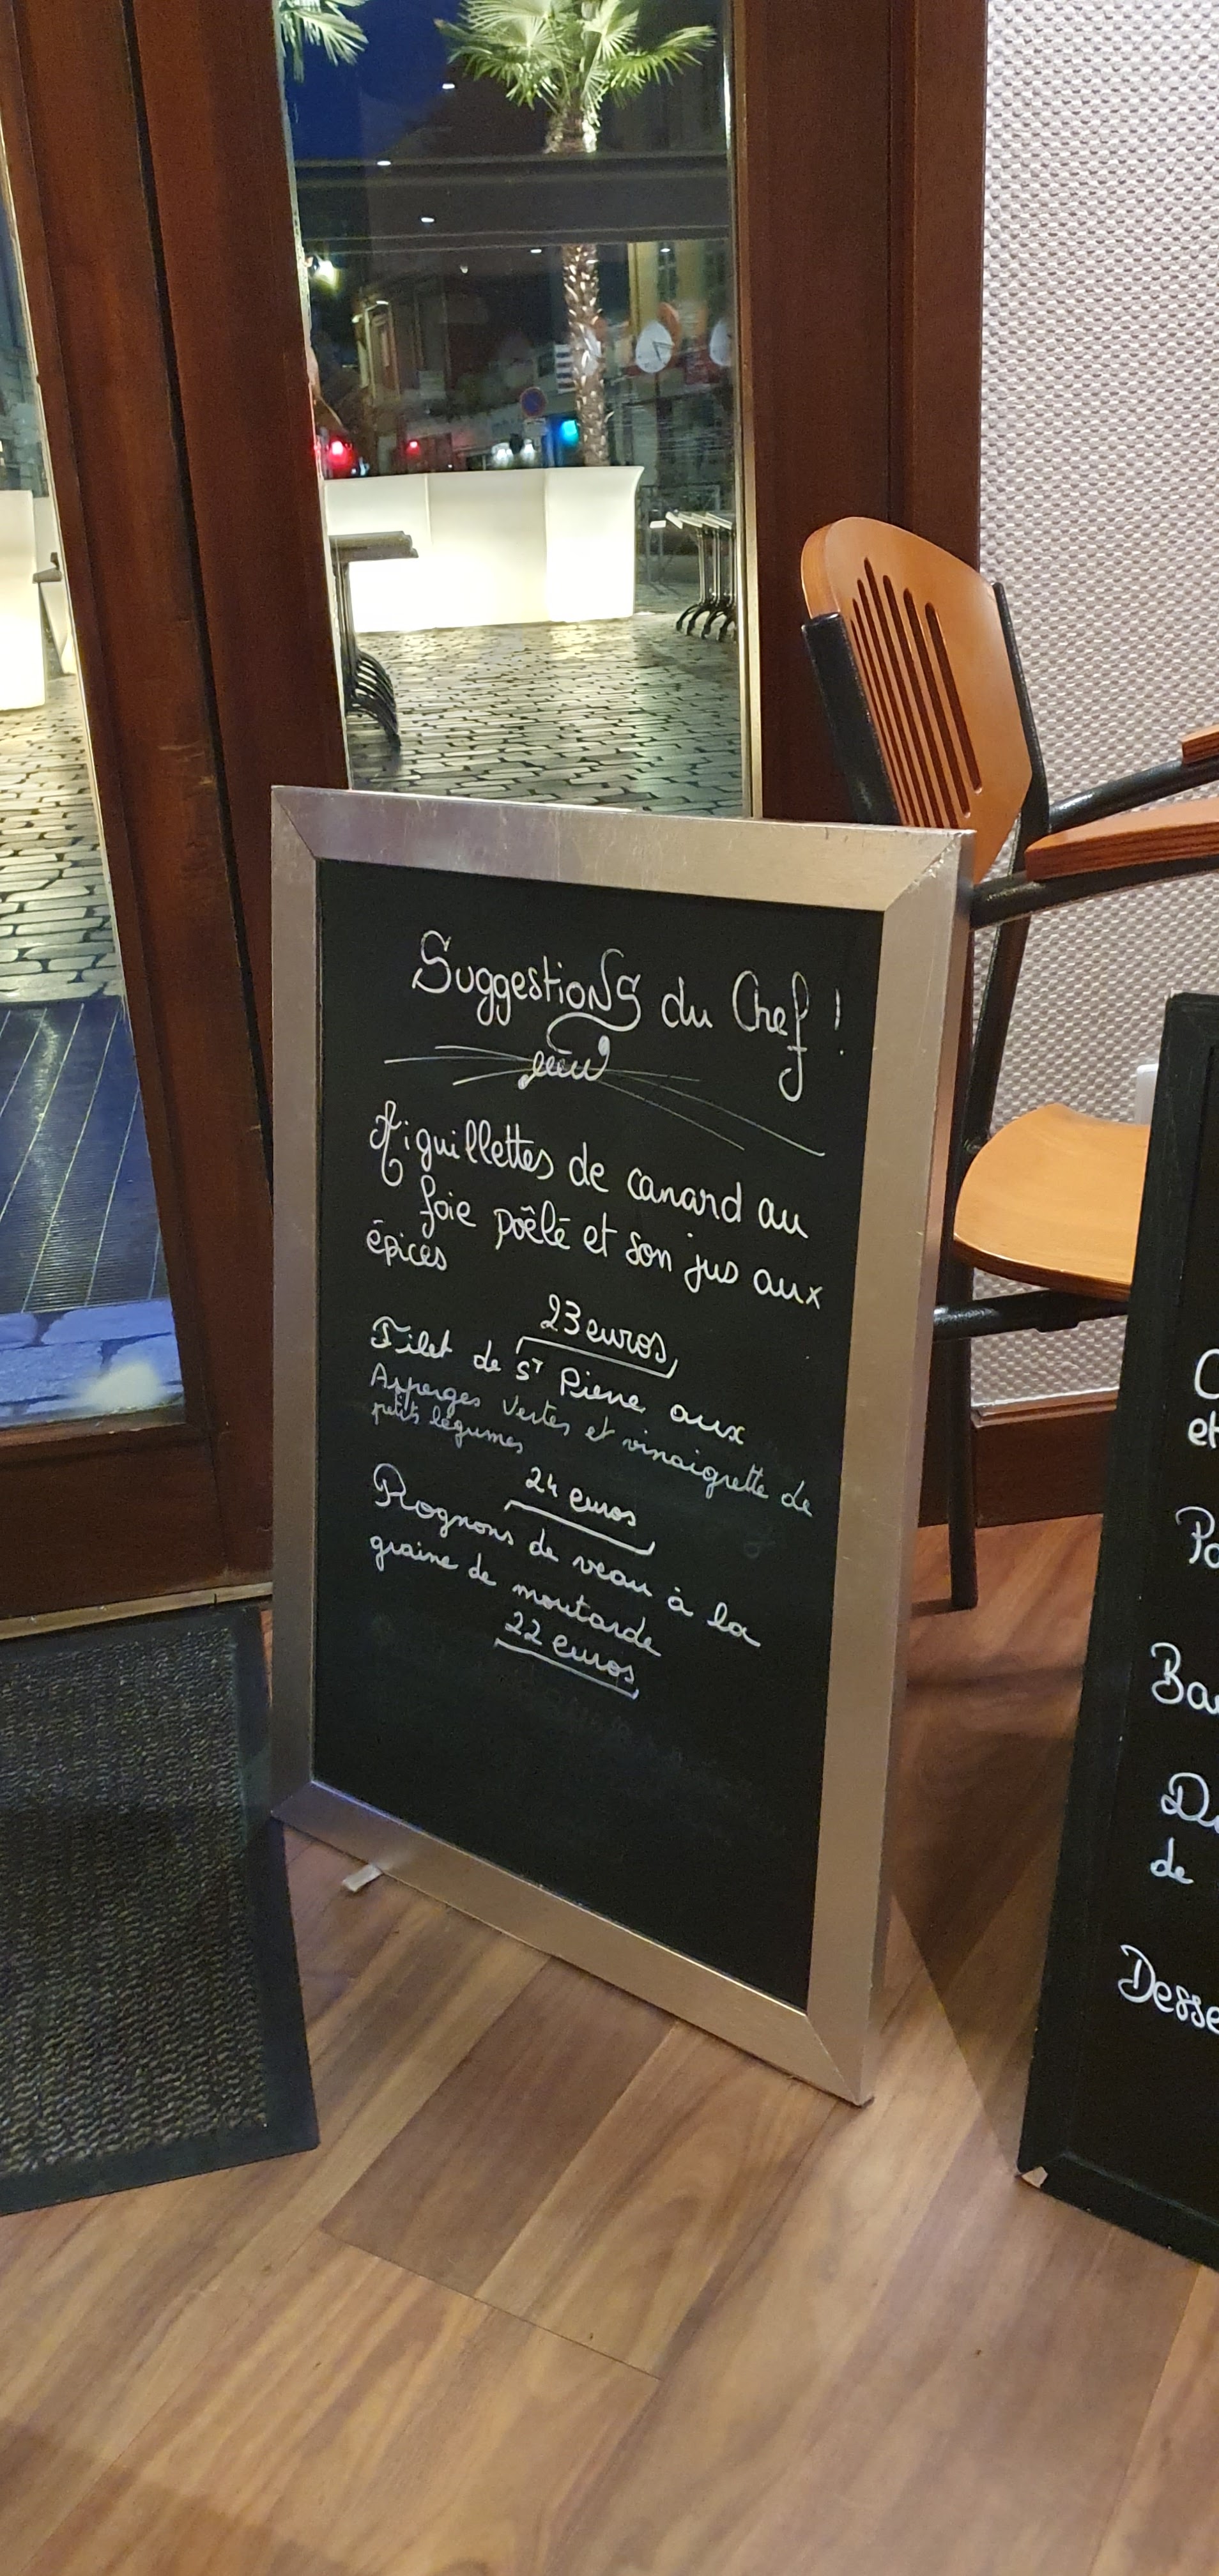 Suggestions du Chef !
Aiguillettes de canard au
foie poêlé et son jus aux
épices
23 euros
Filet de St Pierre aux
Asperges Vertes et vinaigrette de
petits légumes
24 euros
Rognons de veau à la
graine de moutarde
22 euros
et
Po
Ba
de
Desse